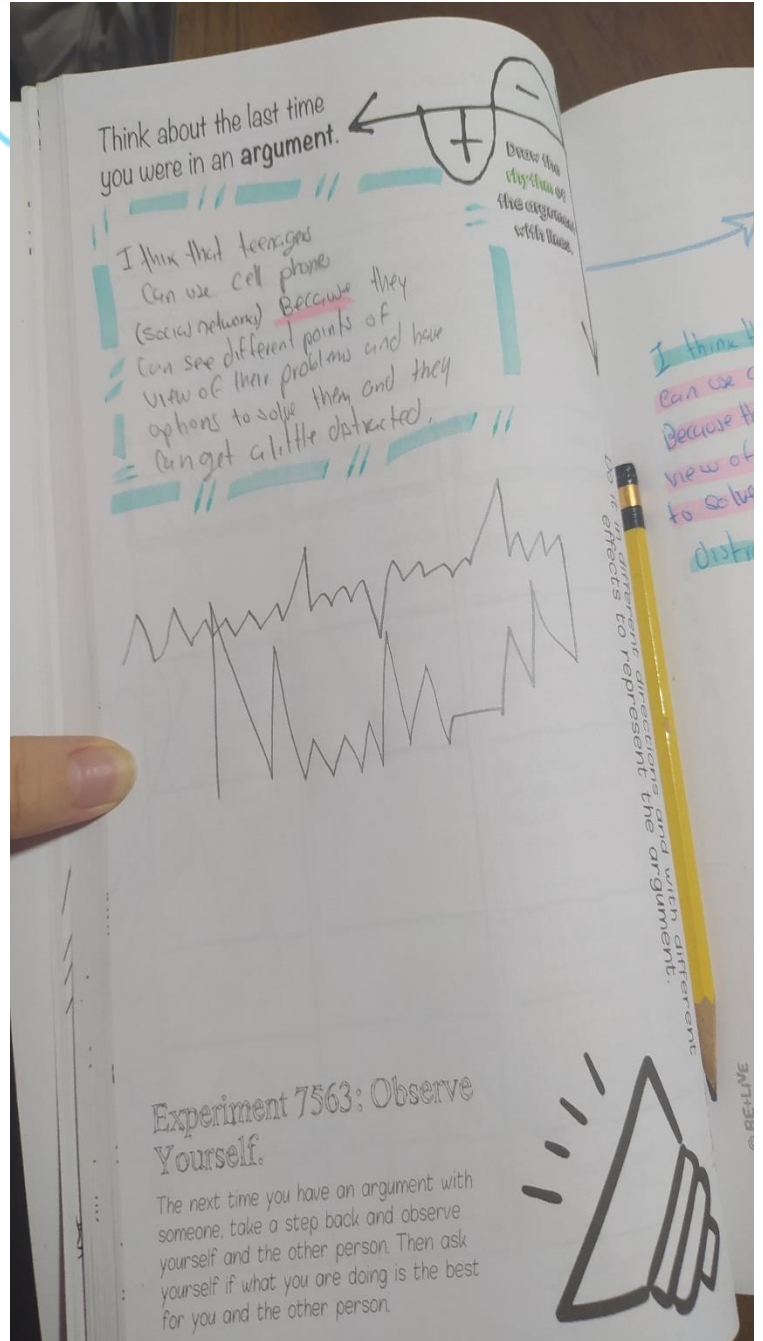 Think about the last time
you were in an argument.
Draw the
rhythm of
the argument
with lines.
I thix that teenagers
can use cell phone
(social networks) Because they
can see different points of
view of their problems and have
options to solve them and they
can get a little distracted.
Do it in different directions and with different
effects to represent the argument.
Experiment 7563: Observe
Yourself.
The next time you have an argument with
someone, take a step back and observe
yourself and the other person. Then ask
yourself if what you are doing is the best
for you and the other person.
I think
can use
Because
view of
to solve
© RE+LIVE